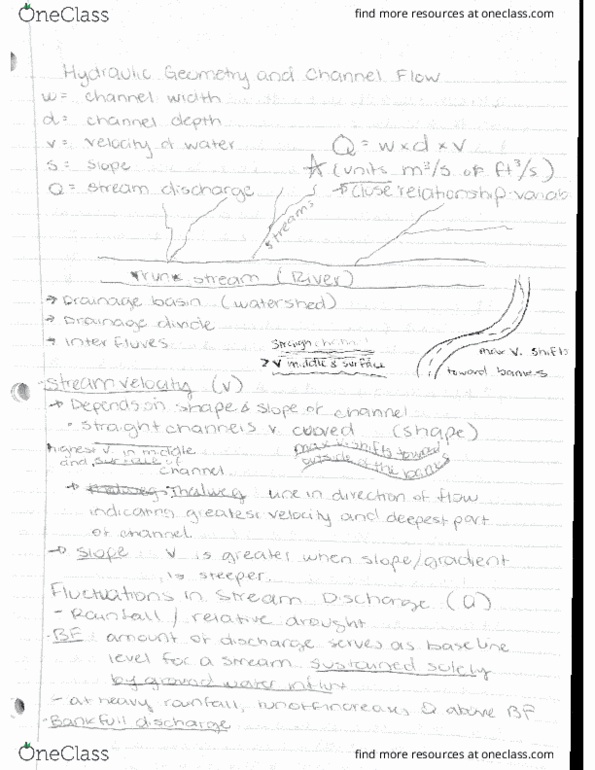 OneClass
find more resources at oneclass.com
Hydraulic Geometry and Channel Flow
w= channel width
d= channel depth
v= velocity of water
Q = w×d×v
s= slope
(units m³/s or ft³/s)
Q= stream discharge
→ close relationship
streams
Trunk stream (River)
→ Drainage basin (watershed)
→ Drainage divide
→ Interfluves
Straight channel
> v middle & surface
max v. shifts
toward bankes
Stream velocity (v)
→ Depends on shape & slope of channel
• straight channels v. curved (shape)
highest v. in middle
and surface of
channel
max v. shifts toward
outside of the bankes
→ Thalweg line in direction of flow
indicating greatest velocity and deepest part
of channel.
→ slope v is greater when slope/gradient
is steeper.
Fluctuations in Stream Discharge (Q)
- Rainfall / relative drought
- BF amount of discharge serves as baseline
level for a stream sustained solely
by ground water influx
- at heavy rainfall, runoff increases Q above BF
- Bankfull discharge
OneClass
find more resources at oneclass.com